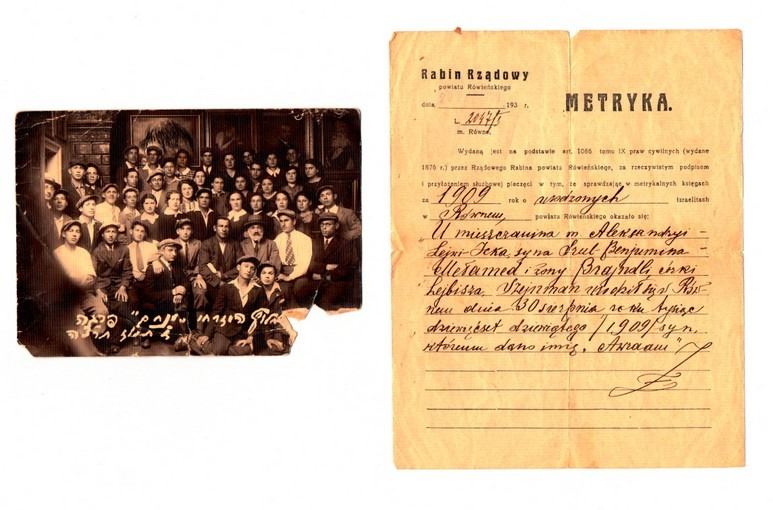 חלוץ המזרחי
Rabin Rządowy
powiatu Rówieńskiego
dnia 193 r.
METRYKA.
L. 2047/I
m. Równe.
Wydaną jest na podstawie art. 1086 tomu IX praw cywilnych (wydane
1876 r.) przez Rządowego Rabina powiatu Rówieńskiego, za rzeczywistym podpisom
i przyłożeniem służbowej pieczęci w tym, że sprawdzając w metrykalnych księgach
za 1909 rok o urodzonych Izraelitach
w Równem powiatu Rówieńskiego okazało się:
"U mieszczanina m. Aleksandryi -
Icka, syna Szul Benjumina -
Mełamed i żony Brajndli, córki
Lejbisza, Szejnman urodził się w Rów-
nem dnia 30 sierpnia roku tysiąc
dziewięćset dziewiątego /1909/ syn,
któremu dano imię "